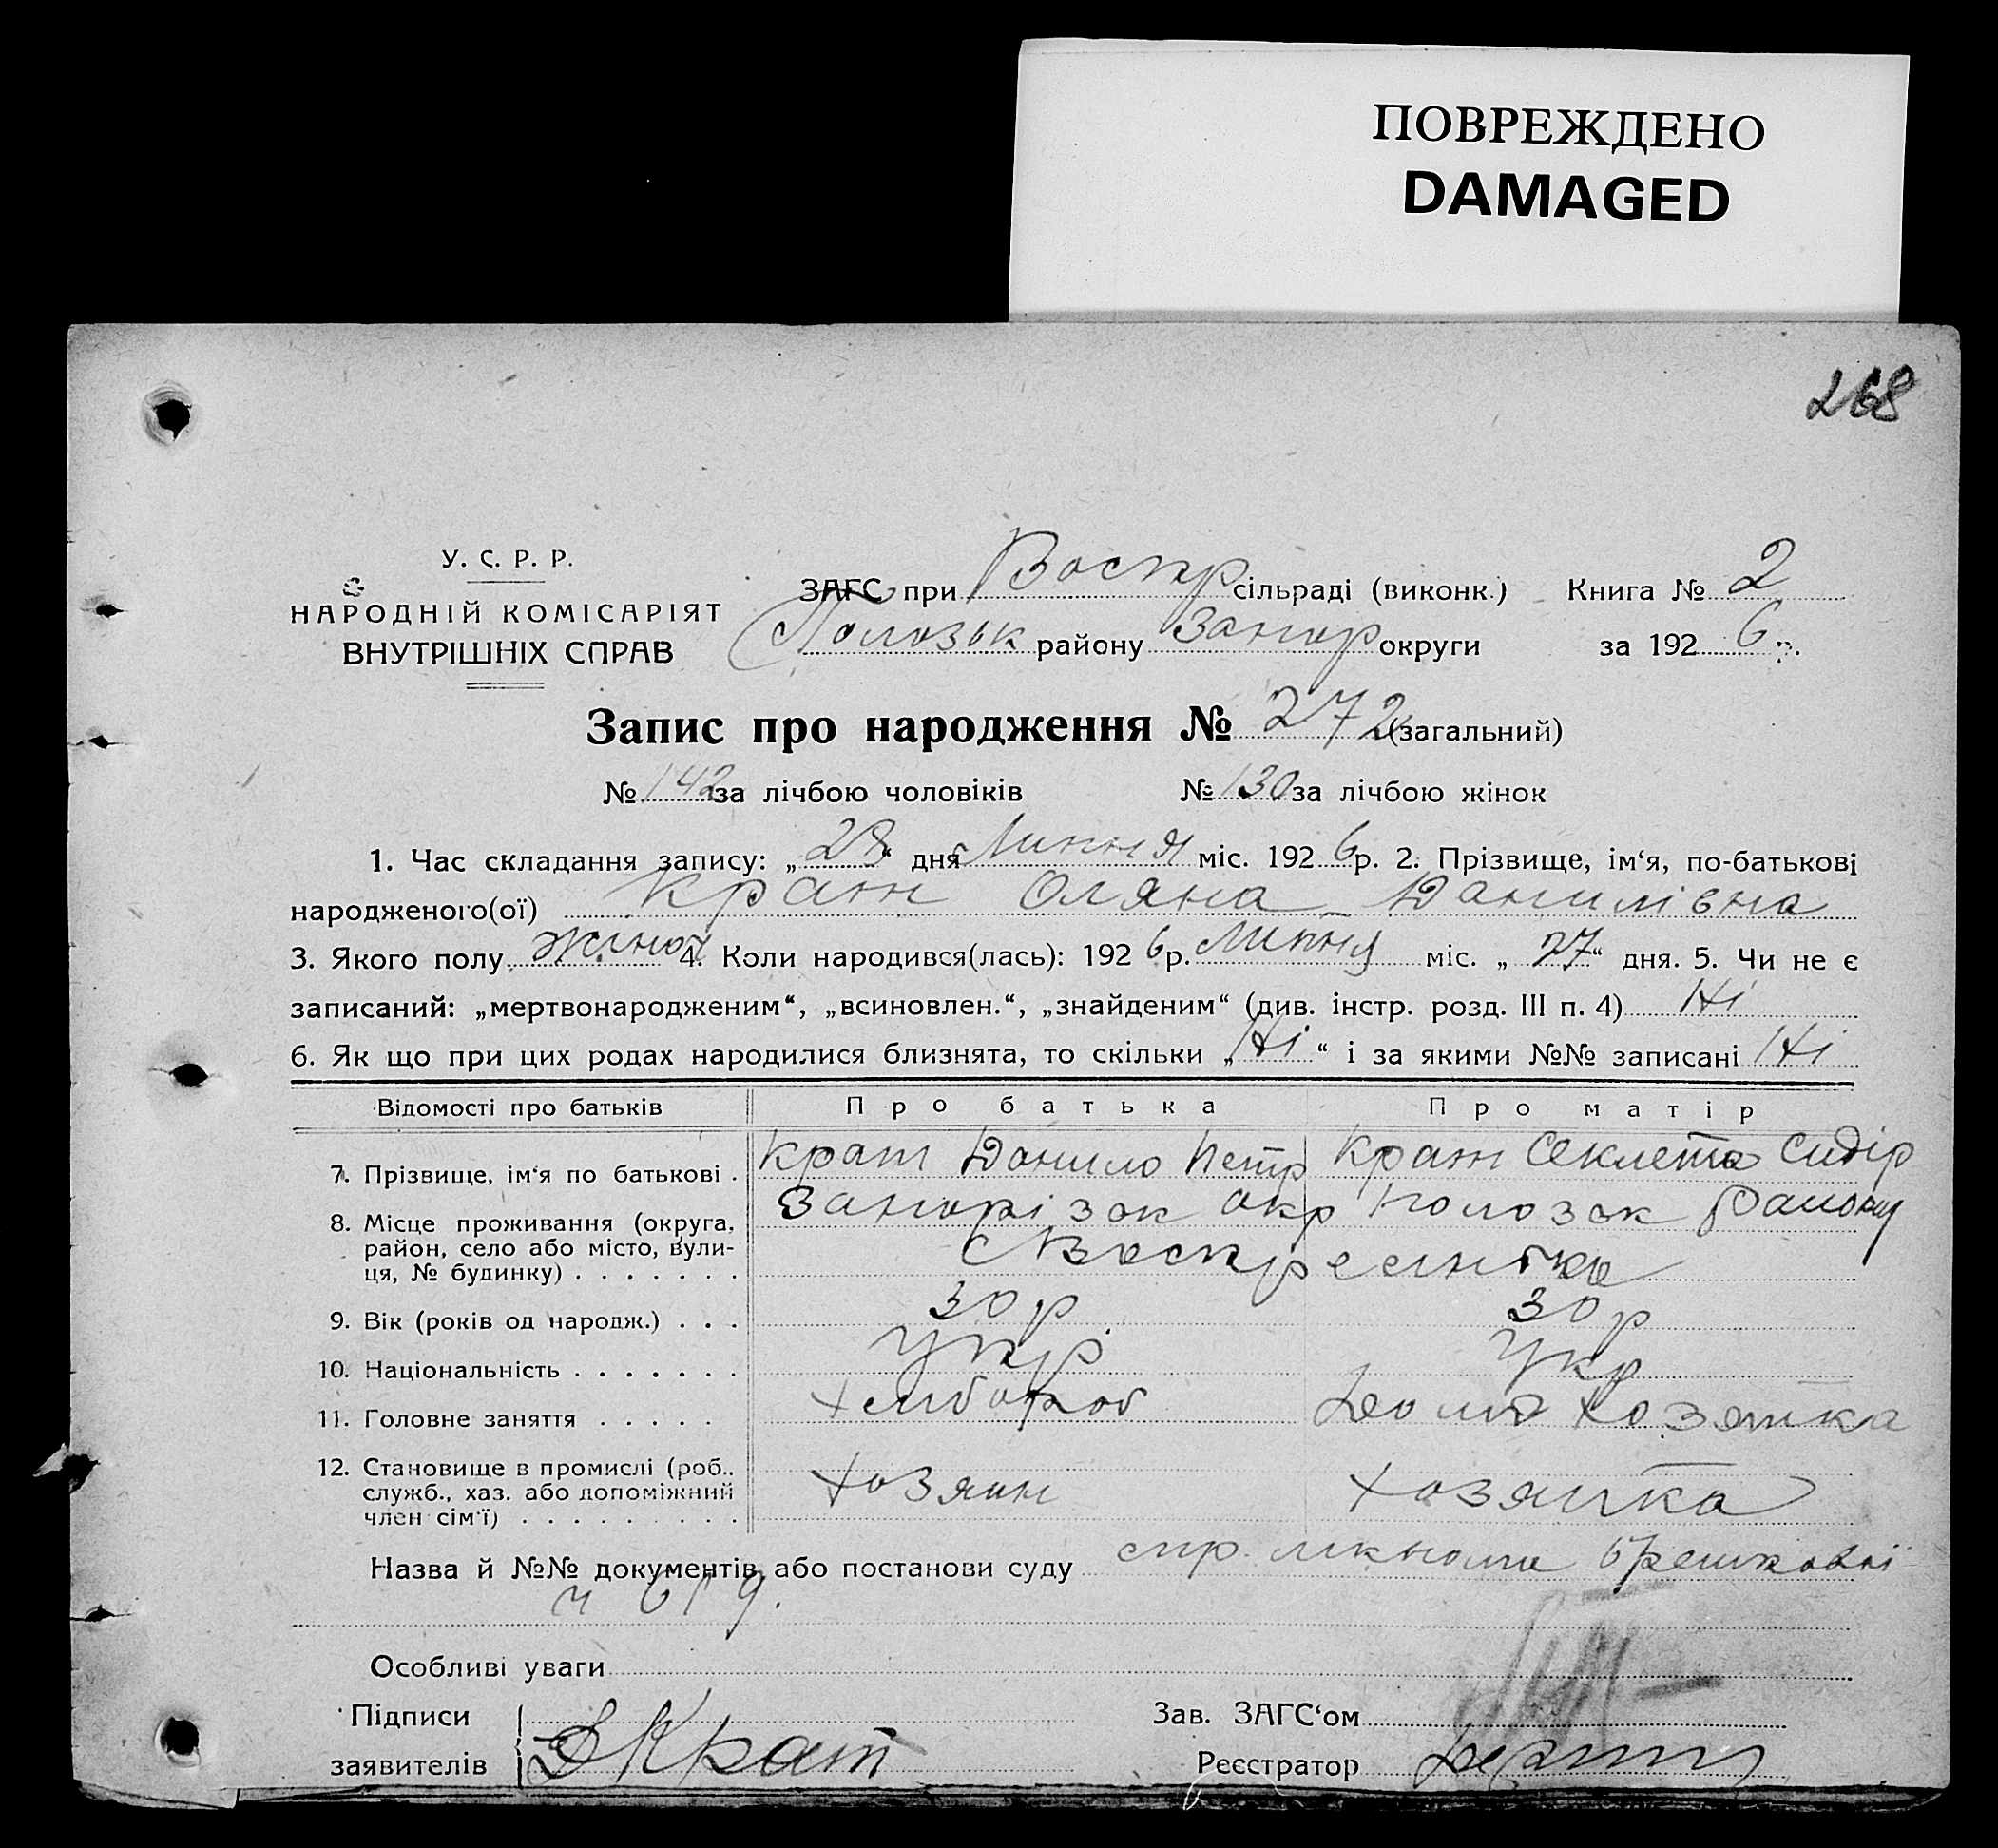 ПОВРЕЖДЕНО
DAMAGED
268
У. С. Р. Р.
НАРОДНІЙ КОМІСАРІЯТ
ВНУТРІШНІХ СПРАВ
ЗАГС при Воскр сільраді (виконк.) Книга № 2
Полозьк району Запор округи за 1926 р.
Запис про народження № 272 (загальний)
№ 142 за лічбою чоловіків № 130 за лічбою жінок
1. Час складання запису: „28“ дня Липня міс. 1926 р. 2. Прізвище, ім‘я, по-батькові
народженого(ої) Крат Оляна Данилівна
3. Якого полу жіноч 4. Коли народився(лась): 1926 р. Липня міс. „27“ дня. 5. Чи не є
записаний: „мертвонародженим“, „всиновлен.“, „знайденим“ (див. інстр. розд. III п. 4) Ні
6. Як що при цих родах народилися близнята, то скільки „Ні“ і за якими №№ записані Ні
Відомості про батьків Про батька Про матір
7. Прізвище, ім‘я по батькові . Крат Данило Петр Крат Секлета Сидір
8. Місце проживання (округа, Запорізок окр Полозок Району
район, село або місто, вули-
ця, № будинку) . . . . . . . Воскресенка
9. Вік (років од народж.) . . . 30 р 30 р
10. Національність . . . . . . . Укр Укр
11. Головне заняття . . . . . Хлібороб Дома Хозяйка
12. Становище в промислі (роб.,
служб., хаз. або допоміжний Хозяин Хозяйка
член сім‘ї) . . . . . . . . .
Назва й №№ документів або постанови суду спр.
ч 619.
Особливі уваги
Підписи Зав. ЗАГС‘ом
заявителів Д Крат Реєстратор